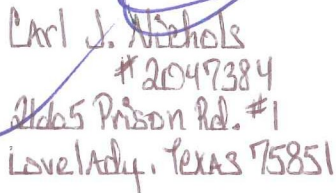 Carl J. Nichols
#2047384
2665 Prison Rd. #1
Lovelady, Texas 75851